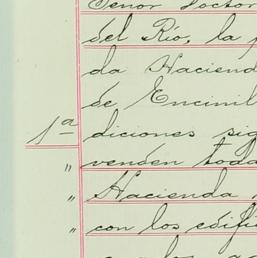 Señor Doctor
del Río, la
da Hacienda
de Encinil
1ª diciones sig
" venden toda
" Hacienda
" con los edifi